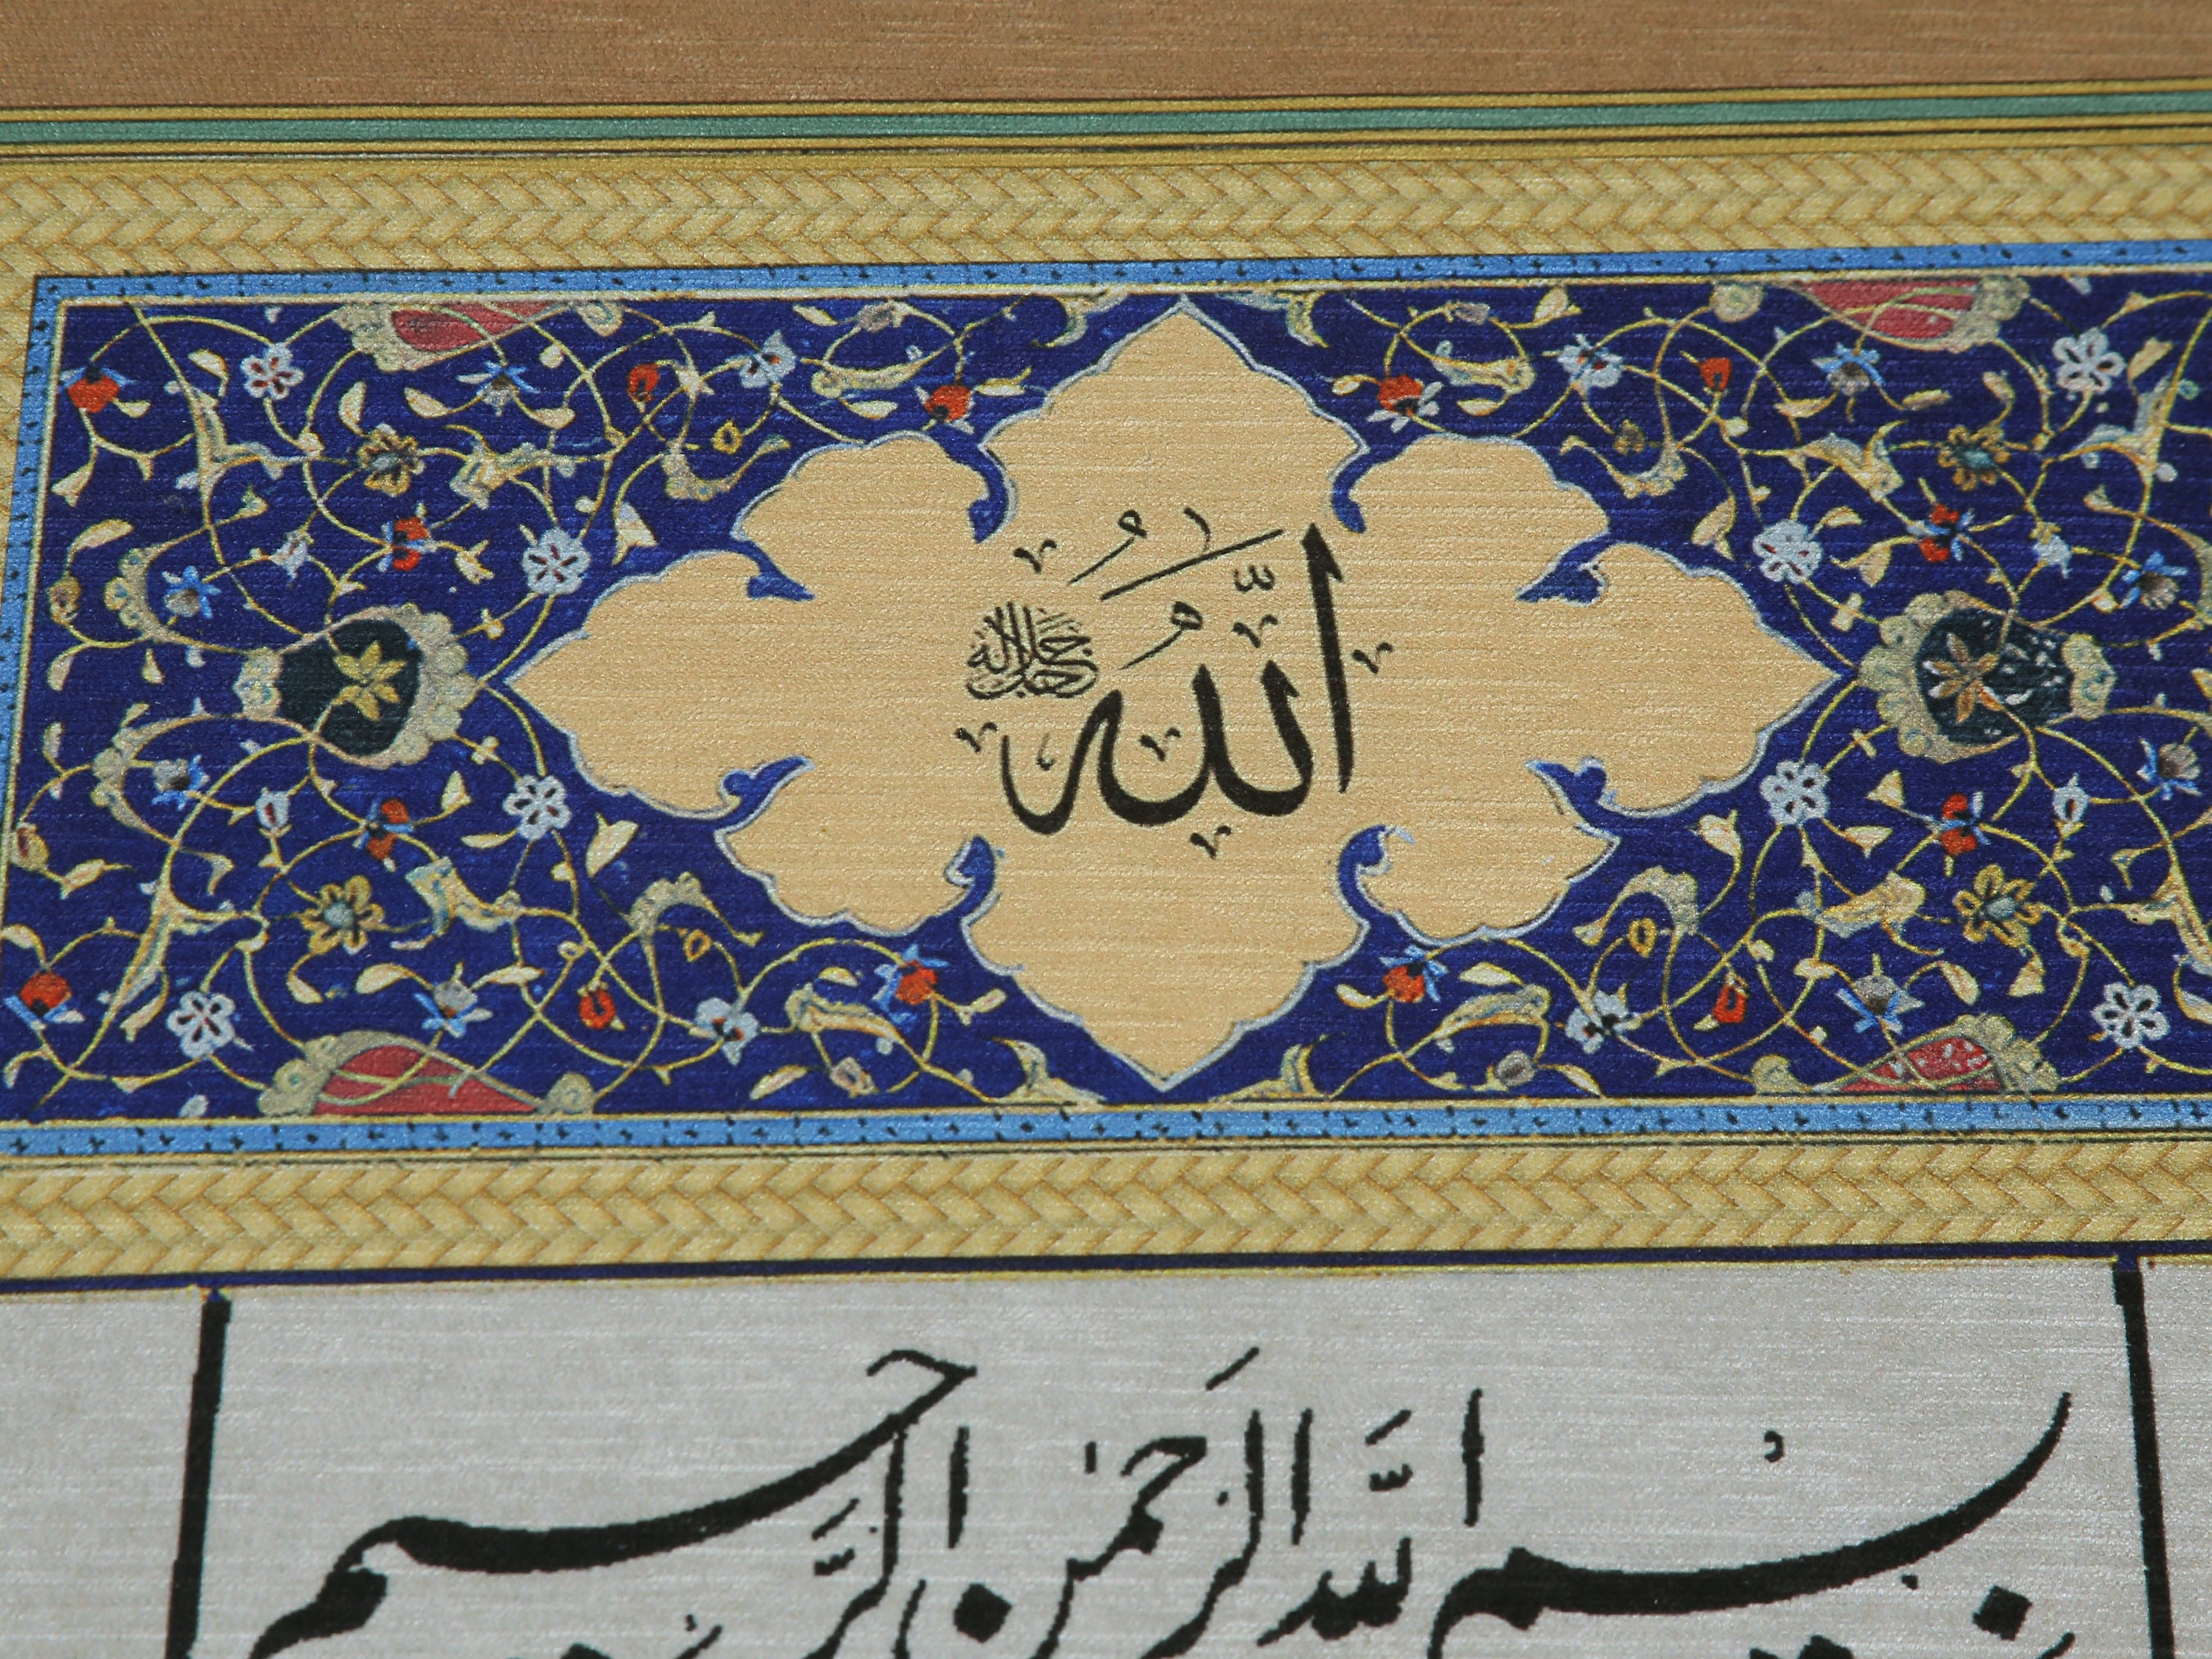 اللّٰهُ جل جلاله
بسم اللّه الرَحمن الرَّحيم